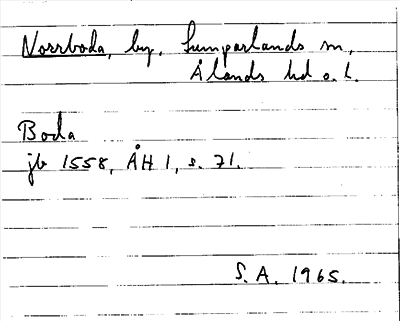 Norrboda, by, Lumparlands sn,
Ålands hd o. l.
Boda
jb 1558, ÅH 1, s. 71.
S.A. 1965.